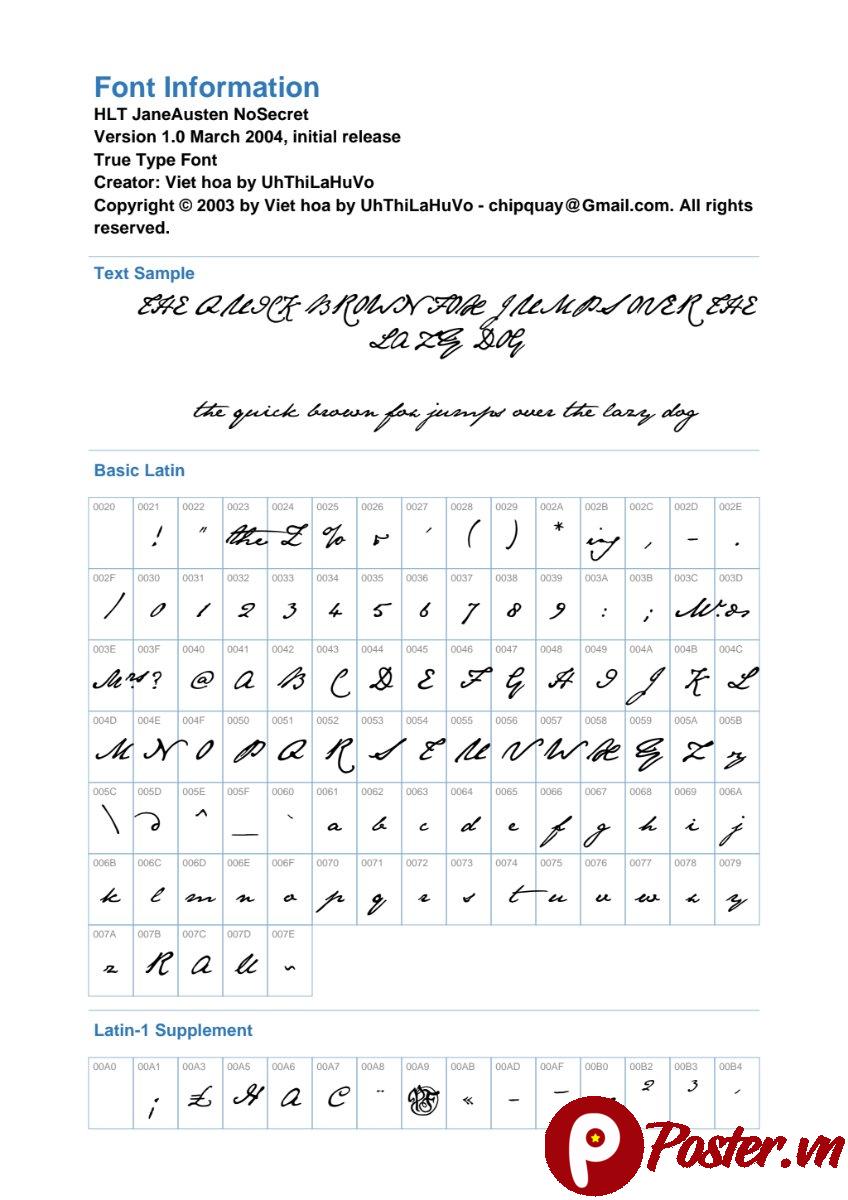 Font Information
HLT JaneAusten NoSecret
Version 1.0 March 2004, initial release
True Type Font
Creator: Viet hoa by UhThiLaHuVo
Copyright © 2003 by Viet hoa by UhThiLaHuVo - chipquay@Gmail.com. All rights
reserved.
Text Sample
THE QUICK BROWN FOX JUMPS OVER THE
LAZY DOG
the quick brown fox jumps over the lazy dog
Basic Latin
0020 0021 0022 0023 0024 0025 0026 0027 0028 0029 002A 002B 002C 002D 002E
! " the Z % r ' ( ) * ing , - .
002F 0030 0031 0032 0033 0034 0035 0036 0037 0038 0039 003A 003B 003C 003D
/ 0 1 2 3 4 5 6 7 8 9 : ; Mr.
003E 003F 0040 0041 0042 0043 0044 0045 0046 0047 0048 0049 004A 004B 004C
Mrs ? @ A B C D E F G H I J K L
004D 004E 004F 0050 0051 0052 0053 0054 0055 0056 0057 0058 0059 005A 005B
M N O P Q R S T U V W X Y Z y
005C 005D 005E 005F 0060 0061 0062 0063 0064 0065 0066 0067 0068 0069 006A
\ ^ _ ` a b c d e f g h i j
006B 006C 006D 006E 006F 0070 0071 0072 0073 0074 0075 0076 0077 0078 0079
k l m n o p q r s t u v w x y
007A 007B 007C 007D 007E
z R A U ~
Latin-1 Supplement
00A0 00A1 00A3 00A5 00A6 00A7 00A8 00A9 00AB 00AD 00AF 00B0 00B2 00B3 00B4
¡ £ H A C ¨ « - ¯ 2 3 ´
Poster.vn